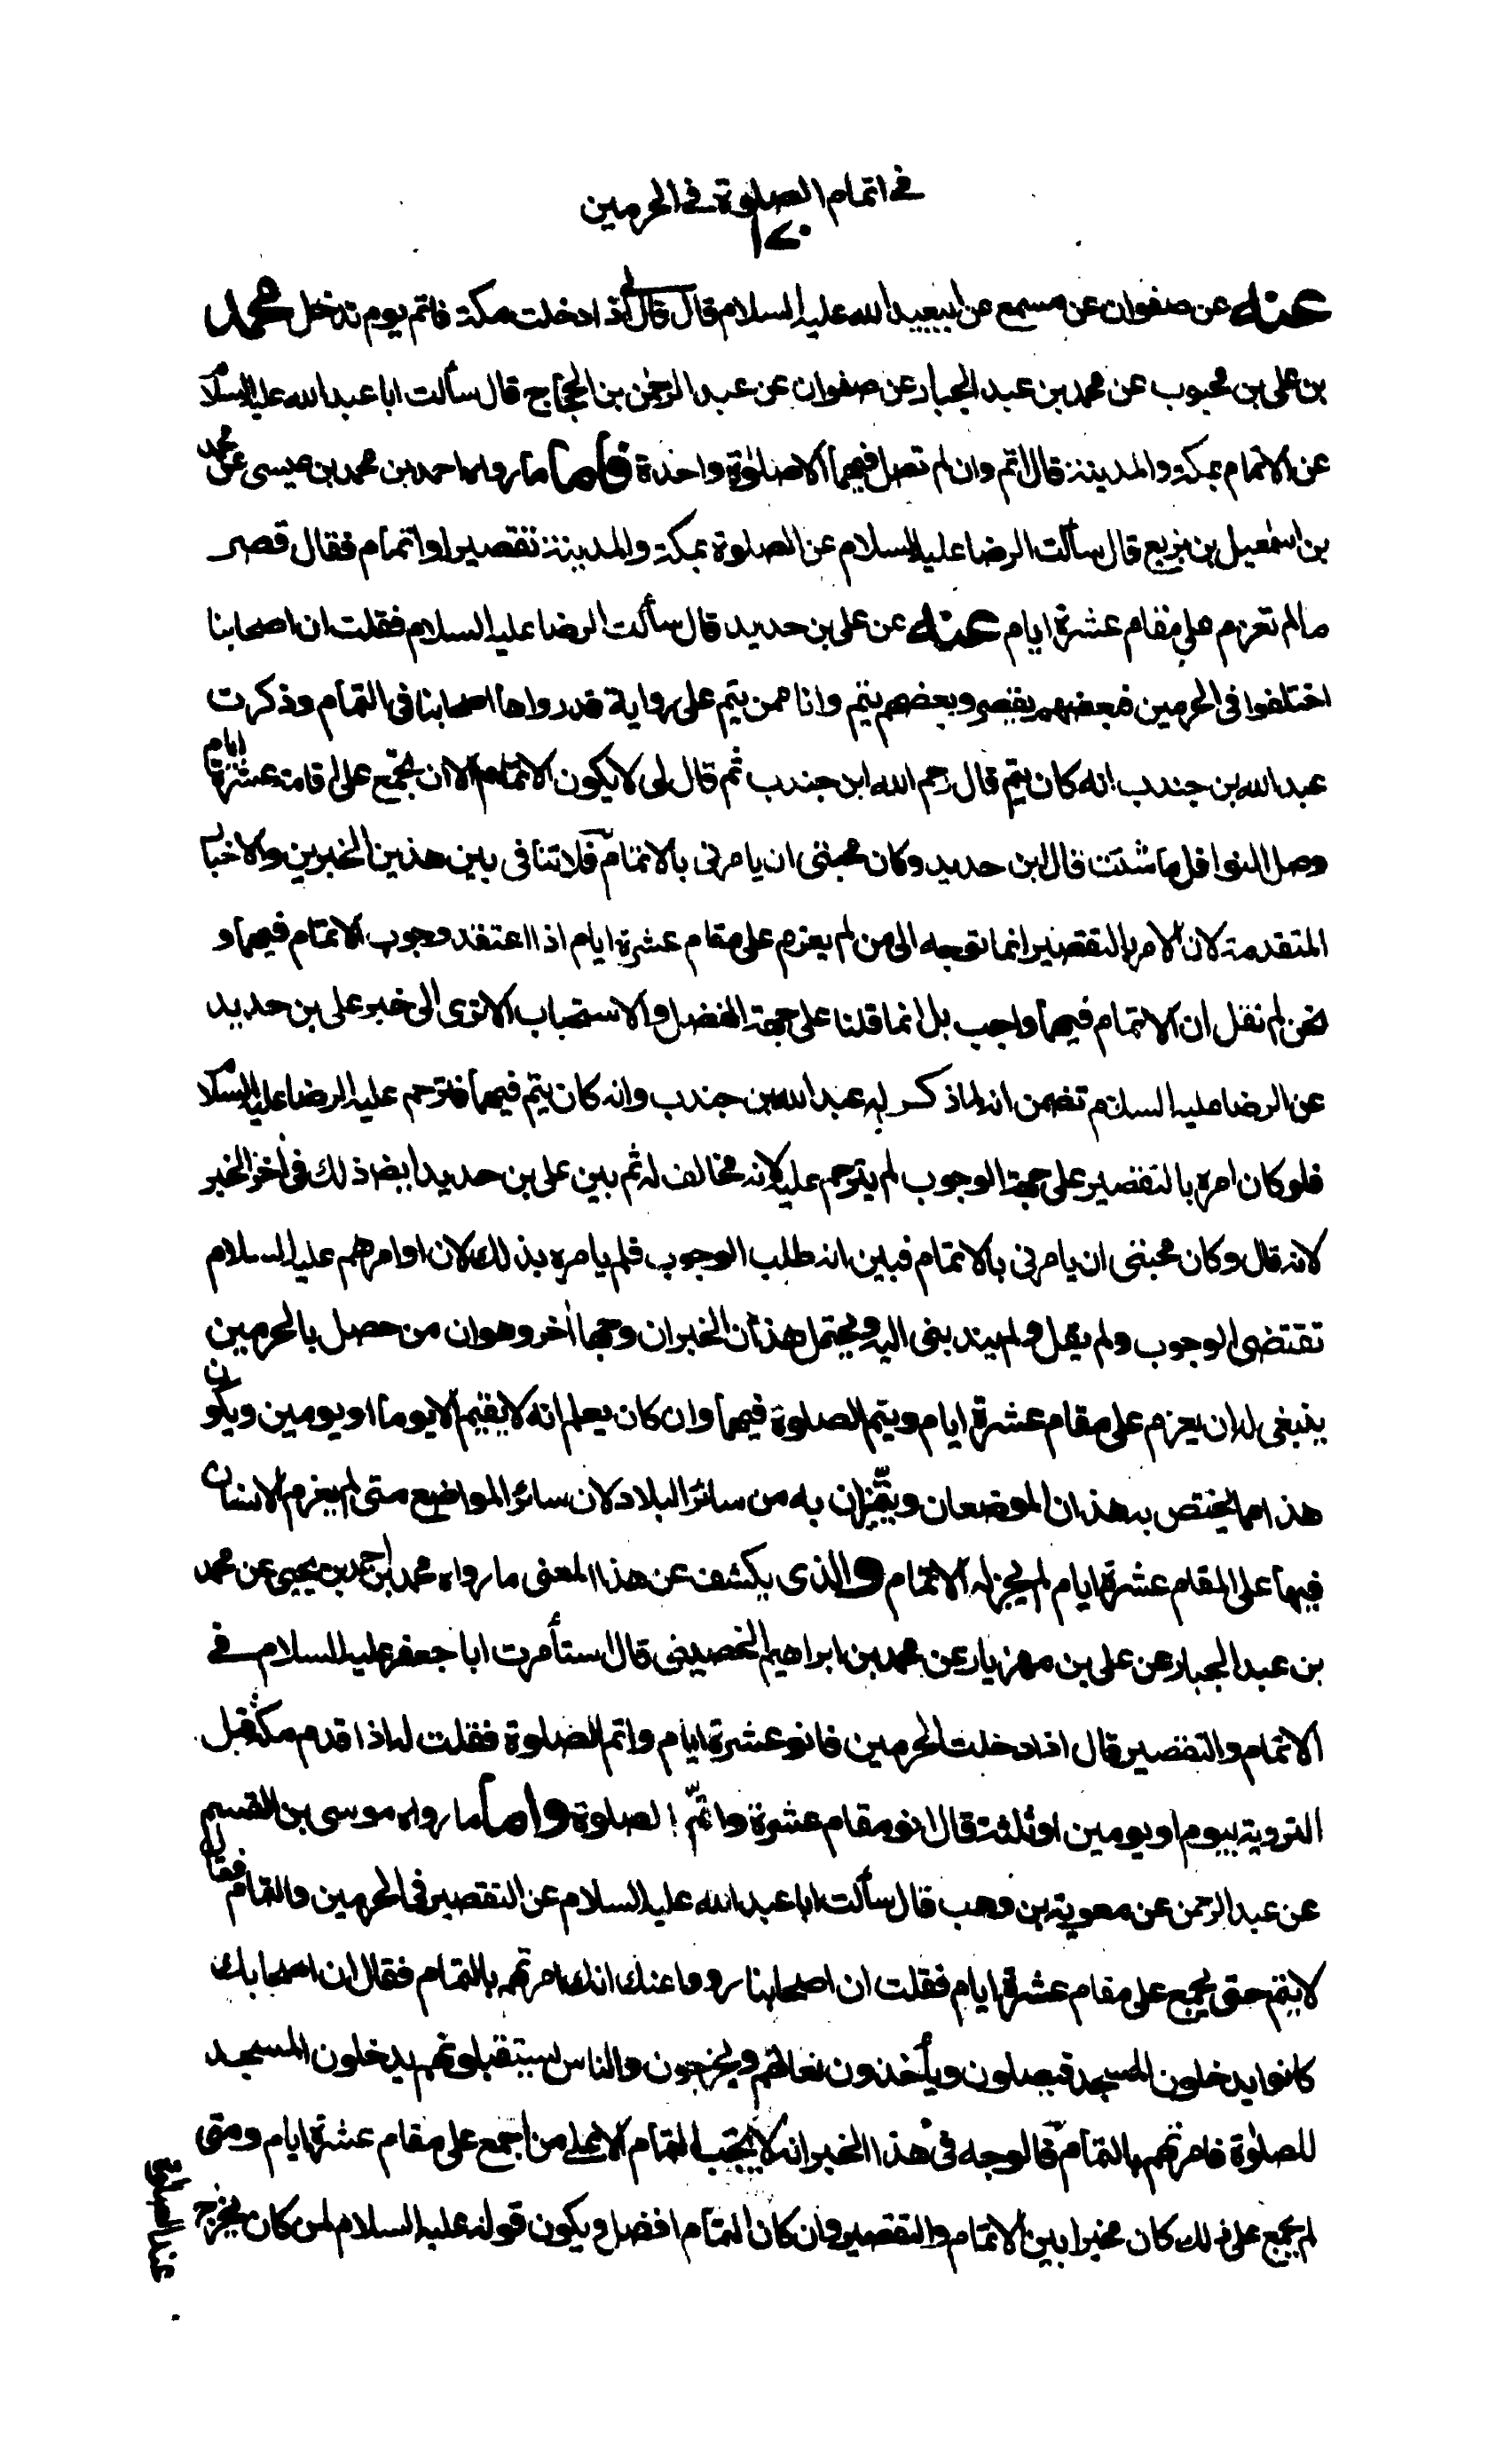 في اتمام الصلوة في الحرمين
١٧٠
عنه عن صفوان عن مسمع عن ابيعبد الله عليه السلام قال قال لي اذا دخلت مكة فاتم يوم تدخل محمد
بن علي بن محبوب عن محمد بن عبد الجبار عن صفوان عن عبد الرحمن بن الحجاج قال سألت ابا عبد الله عليه السلام
عن الاتمام بمكة والمدينة قال اتم وان لم تصل فيهما الا صلوة واحدة فاما ما رواه احمد بن محمد بن عيسى عن محمد
بن اسمعيل بن بزيع قال سألت الرضا عليه السلام عن الصلوة بمكة والمدينة تقصير او اتمام فقال قصر
ما لم تعزم على مقام عشرة ايام عنه عن علي بن حديد قال سألت الرضا عليه السلام فقلت ان اصحابنا
اختلفوا في الحرمين فبعضهم يقصر وبعضهم يتم وانا ممن يتم على رواية قد رواها اصحابنا في التمام وذكرت
عبد الله بن جندب انه كان يتم قال رحم الله ابن جندب ثم قال لي لا يكون الاتمام الا ان تجمع على اقامة عشرة ايام
وصل النوافل ما شئت قال ابن حديد وكان محبتي ان يامرني بالاتمام فلا تنافي بين هذين الخبرين والاخبار
المتقدمة لان الامر بالتقصير انما توجه الى من لم يعزم على مقام عشرة ايام اذا اعتقد وجوب الاتمام فيهما و
نحن لم نقل ان الاتمام فيهما واجب بل انما قلنا على جهة الفضل والاستحباب الا ترى الى خبر علي بن حديد
عن الرضا عليه السلام تضمن انه لما ذكر له عبد الله بن جندب وانه كان يتم فيهما فترحم عليه الرضا عليه السلام
فلو كان امره بالتقصير على جهة الوجوب لم يترحم عليه لانه مخالف له ثم بين علي بن حديد ايضا ذلك في اخر الخبر
لانه قال وكان محبتي ان يامرني بالاتمام فبين انه طلب الوجوب فلم يامره بذلك لان اوامرهم عليه السلام
تقتضي الوجوب ولم يقل ولم يندبني اليه ويحتمل هذان الخبران وجها اخر وهو ان من حصل بالحرمين
ينبغي له ان يعزم على مقام عشرة ايام ويتم الصلوة فيهما وان كان يعلم انه لا يقيم الا يوما او يومين ويكون
هذا مما يختص به هذان الموضعان ويتميزان به من سائر البلاد لان سائر المواضع متى لم يعزم الانسان
فيها على المقام عشرة ايام لم يجز له الاتمام والذي يكشف عن هذا المعنى ما رواه محمد بن احمد بن يحيى عن محمد
بن عبد الجبار عن علي بن مهزيار عن محمد بن ابراهيم الخضيني قال استأمرت ابا جعفر عليه السلام في
الاتمام والتقصير قال اذا دخلت الحرمين فانو عشرة ايام واتم الصلوة فقلت له اذا قدم مكة قبل
التروية بيوم او يومين او ثلثة قال انو مقام عشرة واتم الصلوة واما ما رواه موسى بن القسم
عن عبد الرحمن عن معوية بن وهب قال سألت ابا عبد الله عليه السلام عن التقصير في الحرمين والتمام فقال
لا يتم حتى يجمع على مقام عشرة ايام فقلت ان اصحابنا رووا عنك انك امرتهم بالتمام فقال ان اصحابك
كانوا يدخلون المسجد فيصلون ويأخذون نعالهم ويخرجون والناس يستقبلونهم يدخلون المسجد
للصلوة فامرتهم بالتمام فالوجه في هذا الخبر انه لا يجب التمام الا على من اجمع على مقام عشرة ايام ومتى
لم يجمع على ذلك كان مخيرا بين الاتمام والتقصير وان كان التمام افضل ويكون قوله عليه السلام لمن كان يخرج